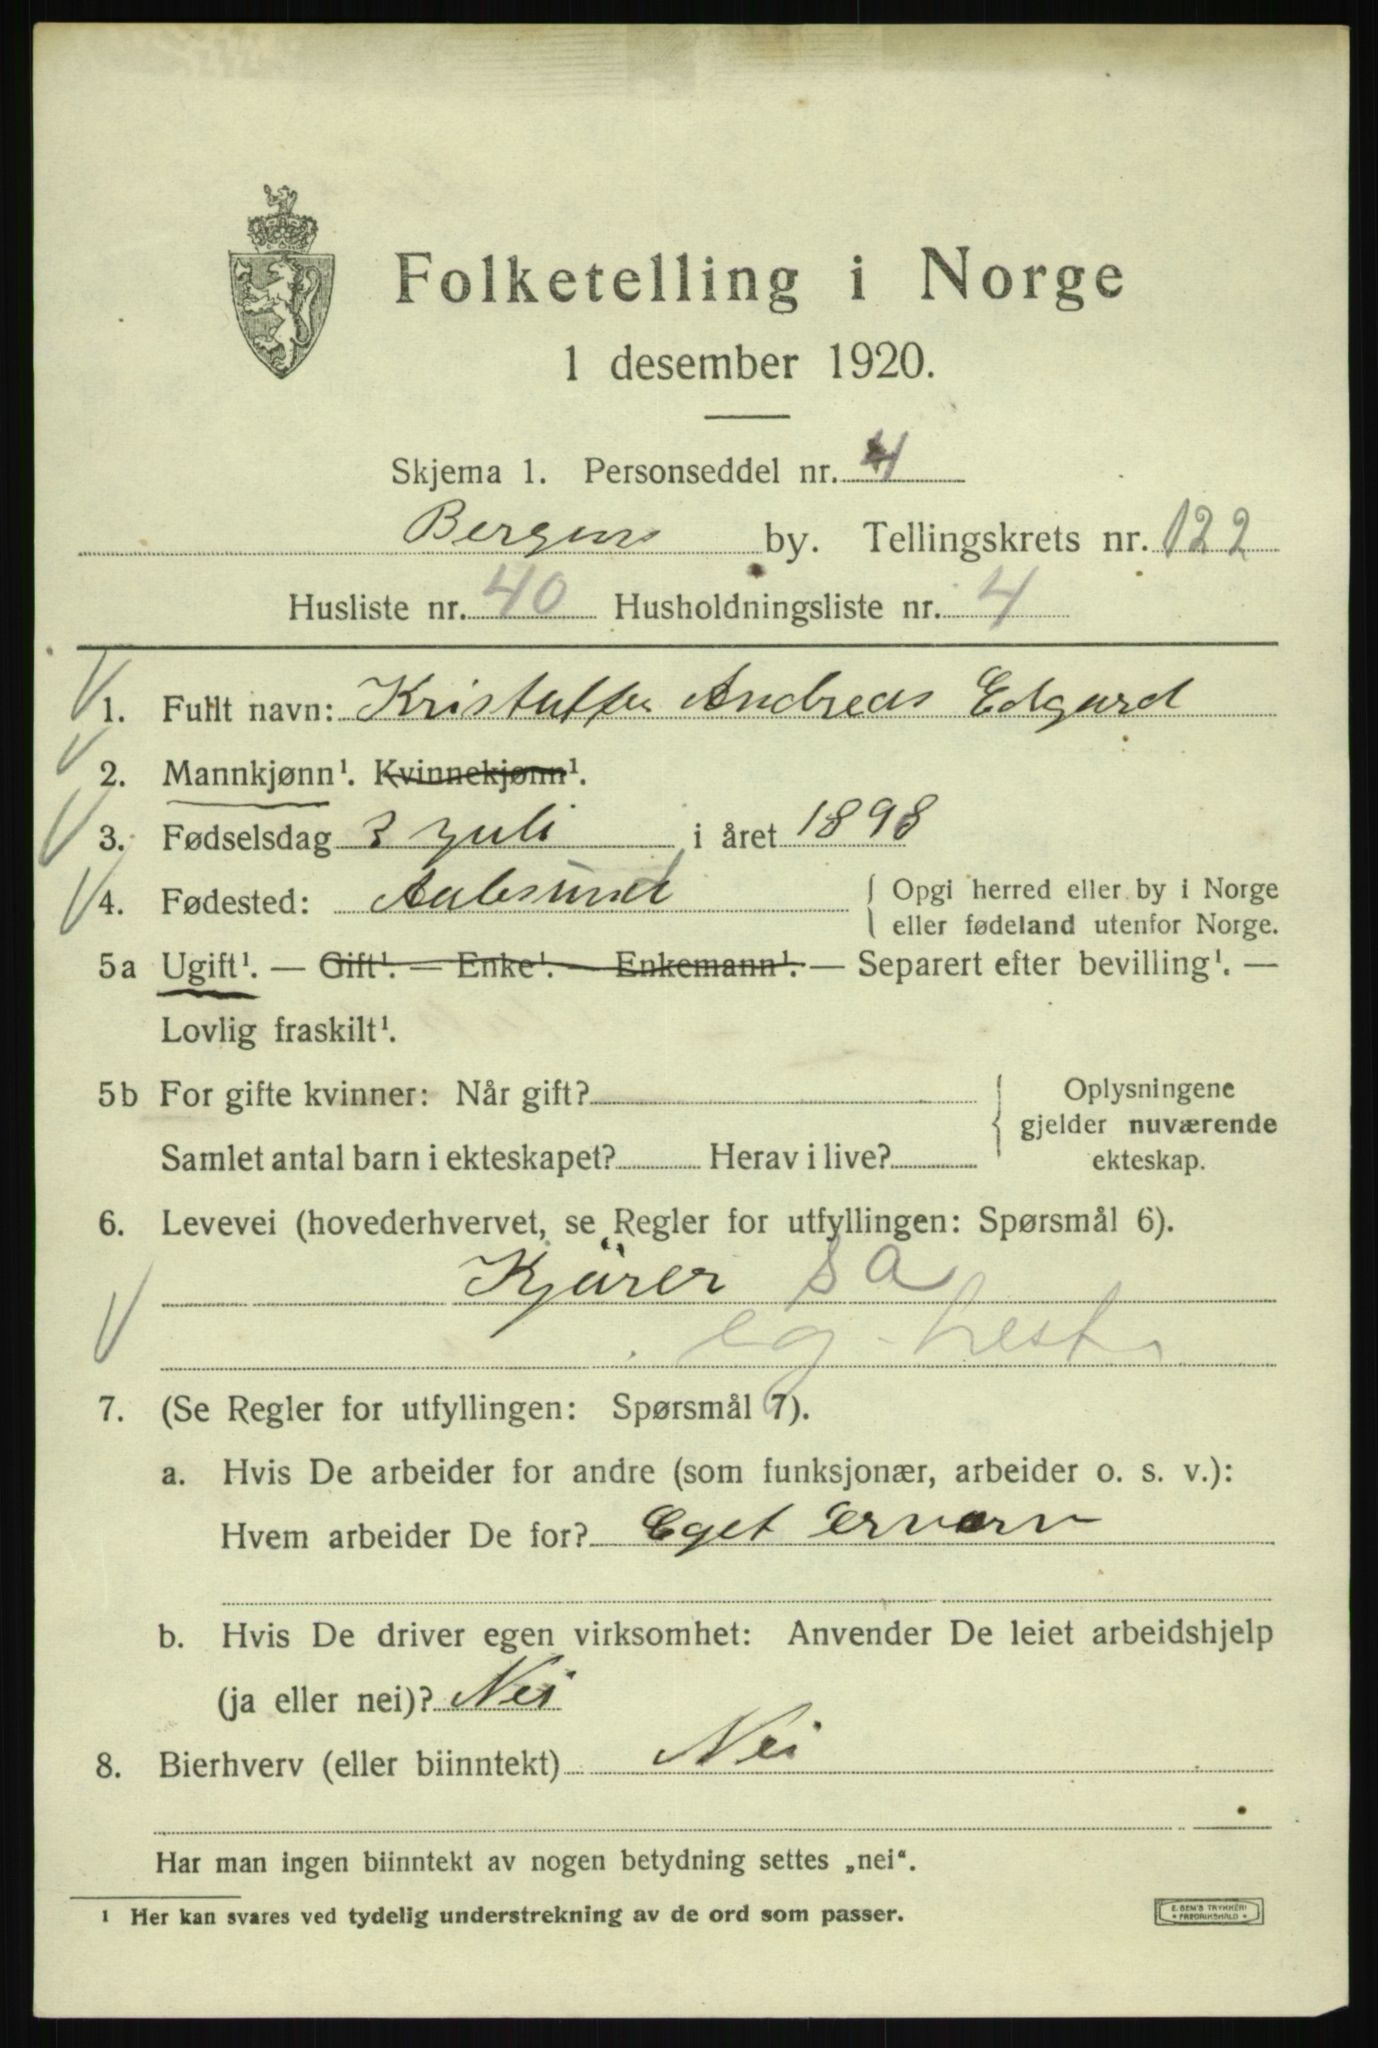 Folketelling i Norge
1 desember 1920.
Skjema 1. Personseddel nr. 4
Bergens by. Tellingskrets nr. 122
Husliste nr. 40 Husholdningsliste nr. 4
1. Fullt navn: Kristoffer Andreas Edgard
2. Mannkjønn¹. Kvinnekjønn¹.
3. Fødselsdag 3 juli i året 1898
4. Fødested: Aalesund { Opgi herred eller by i Norge
eller fødeland utenfor Norge.
5a Ugift¹. — Gift¹. — Enke¹. — Enkemann¹. — Separert efter bevilling¹. —
Lovlig fraskilt¹.
5b For gifte kvinner: Når gift? { Oplysningene
gjelder nuværende
Samlet antal barn i ekteskapet? Herav i live? ekteskap.
6. Levevei (hovederhvervet, se Regler for utfyllingen: Spørsmål 6).
Kjörer sa
eg. hest.
7. (Se Regler for utfyllingen: Spørsmål 7).
a. Hvis De arbeider for andre (som funksjonær, arbeider o. s. v.):
Hvem arbeider De for? Eget Erverv
b. Hvis De driver egen virksomhet: Anvender De leiet arbeidshjelp
(ja eller nei)? Nei
8. Bierhverv (eller biinntekt) Nei
Har man ingen biinntekt av nogen betydning settes „nei“.
¹ Her kan svares ved tydelig understrekning av de ord som passer.
E. SEM'S TRYKKERI
FREDRIKSHALD